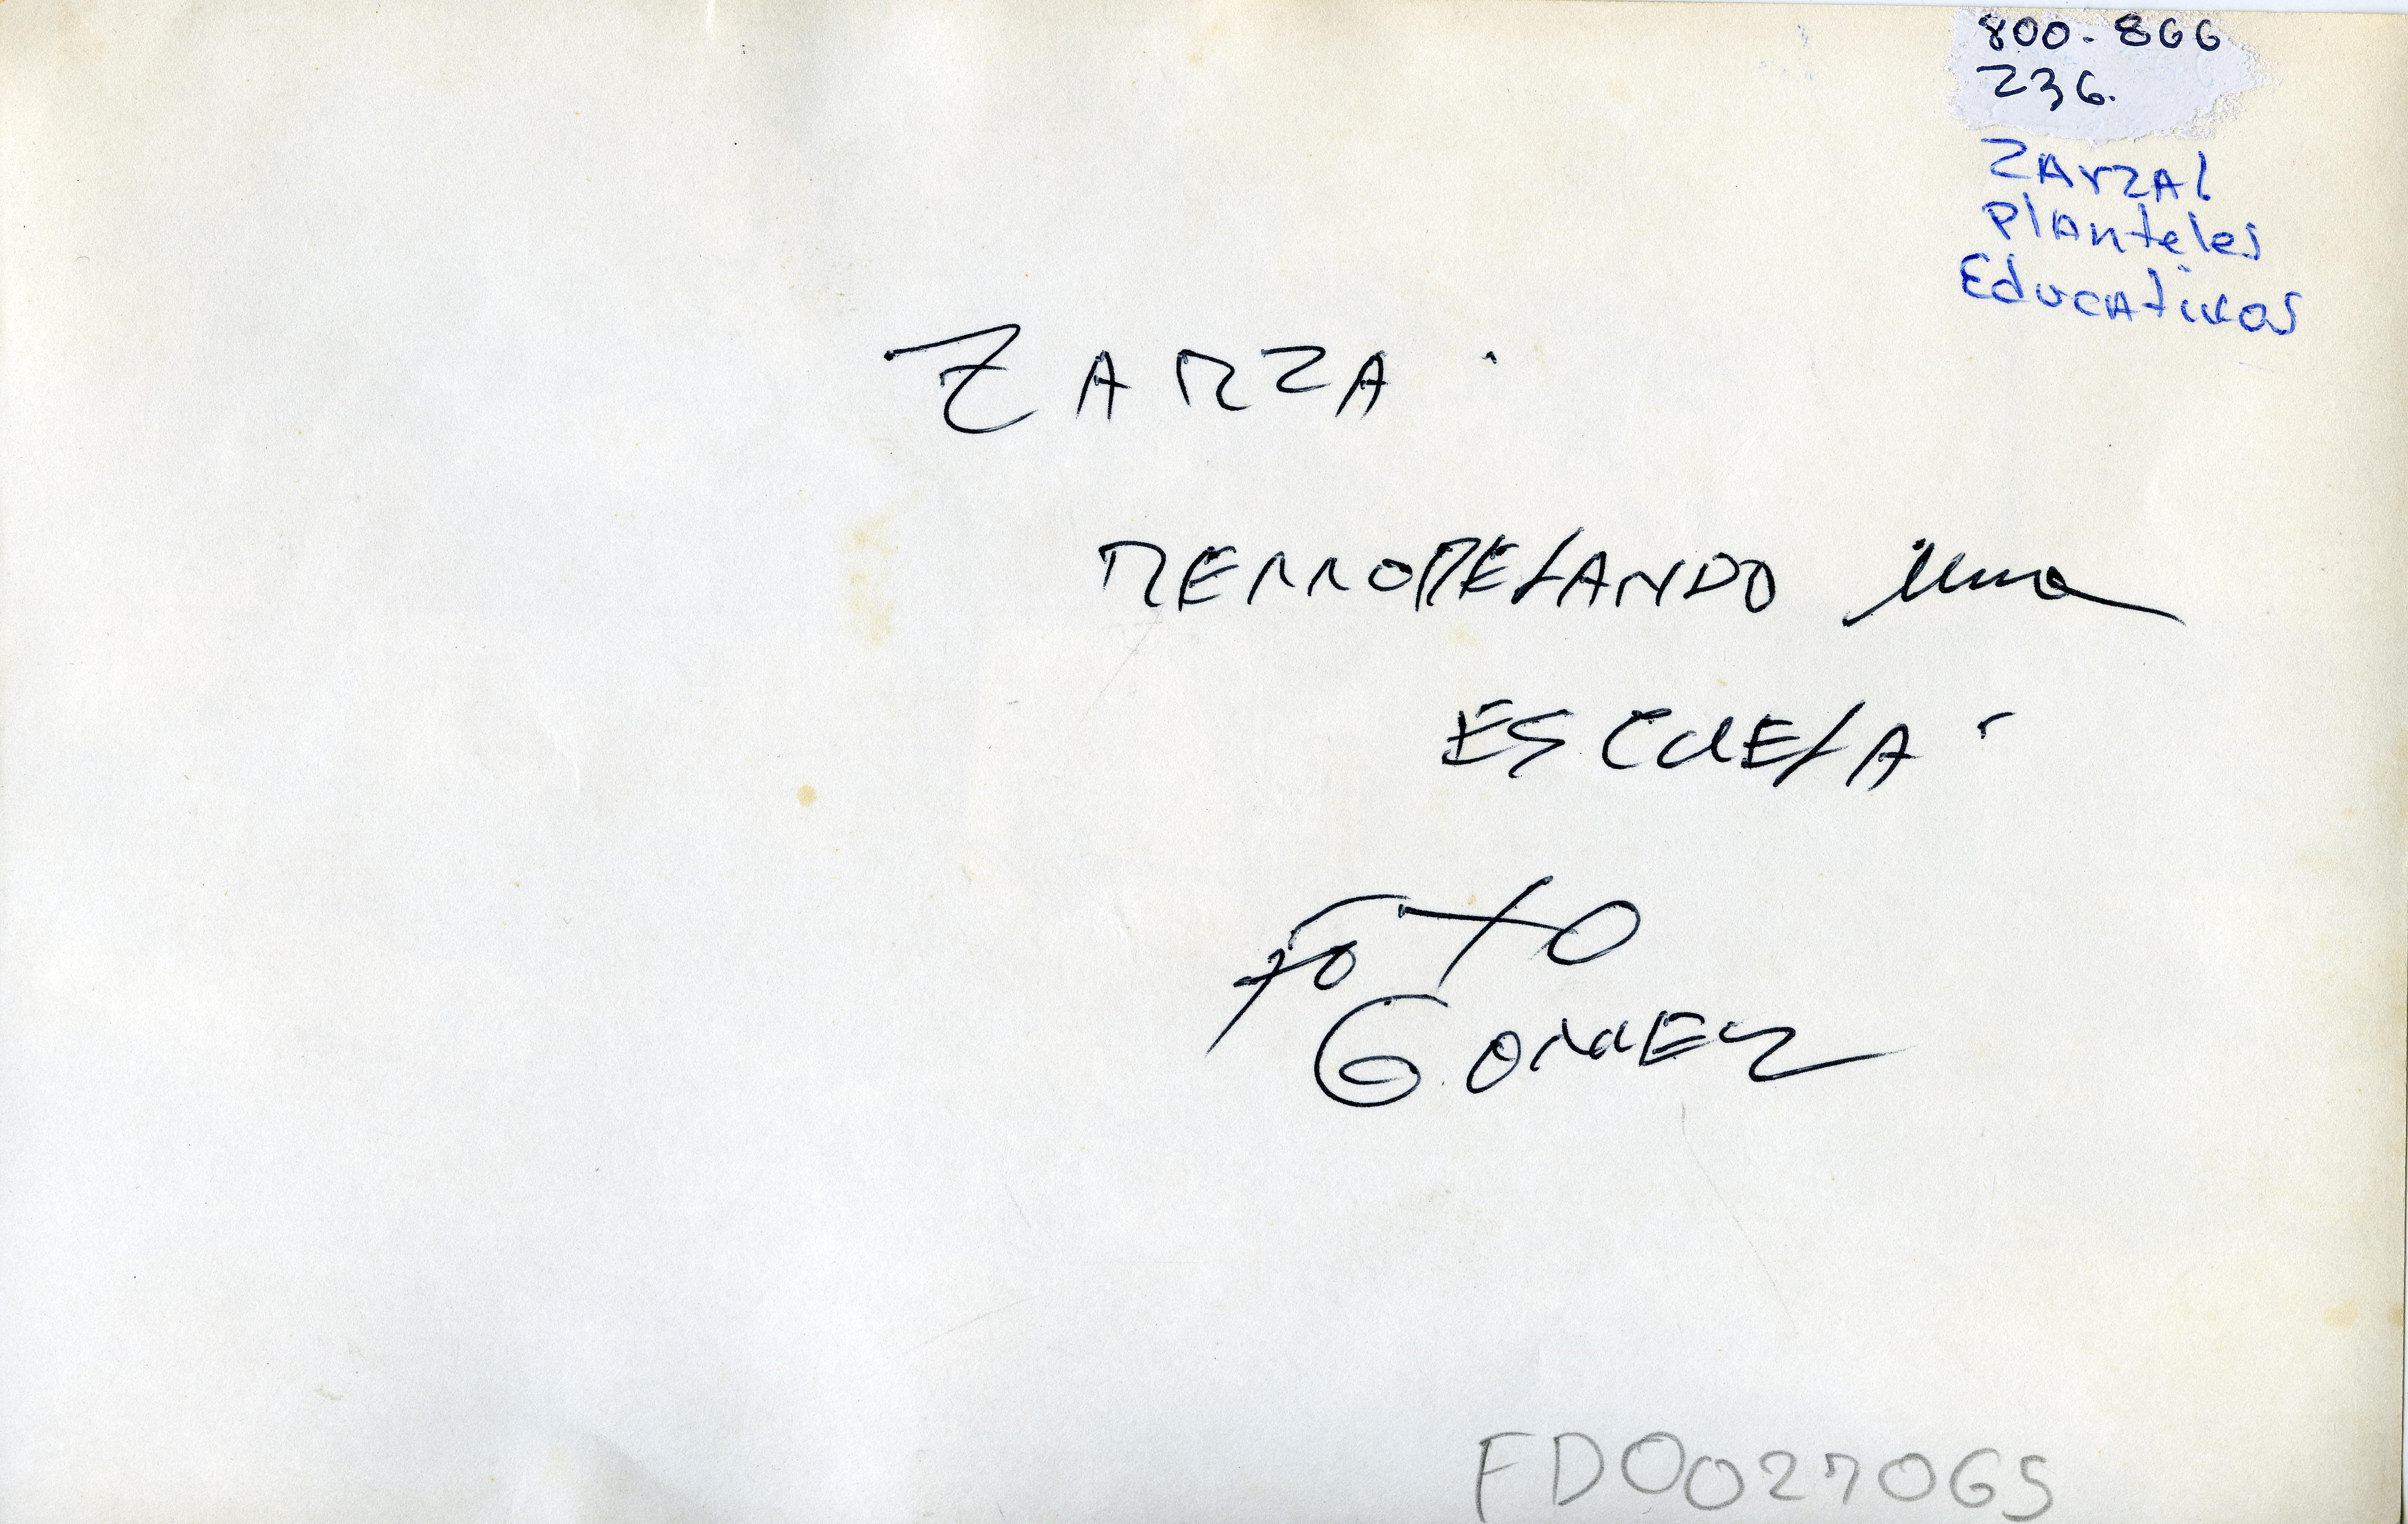 800-866
236.
ZArzAl
PlAnteles
EducAtivos
ZARZA.
REMODELANDO una
ESCUELA.
FOTO
GOMEZ
FD0027065